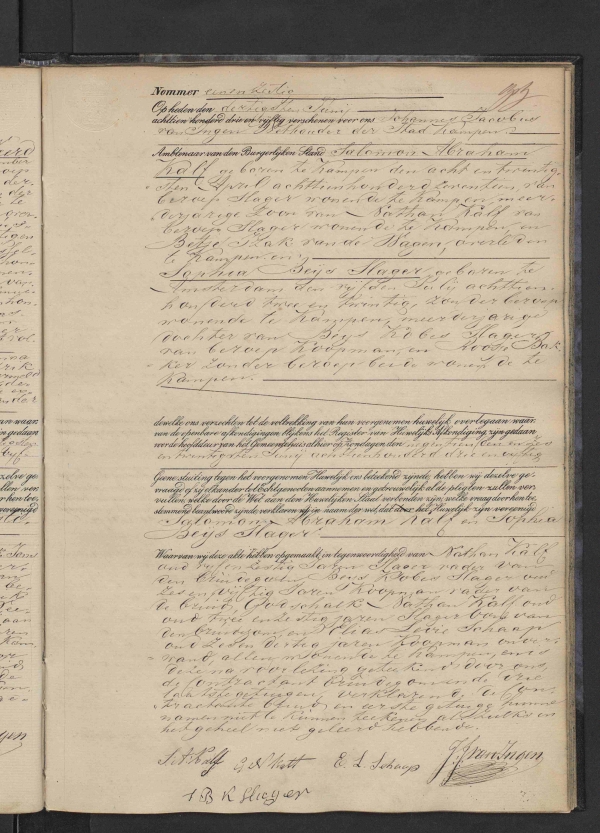 Nommer eenenzestig
Op heden den dertigsten Juni
achttien honderd drie en vijftig verschenen voor ons Johannes Jacobus
van Ingen Wethouder der Stad Kampen
Ambtenaar van den Burgerlijken Stand Salomon Abraham
Kalf geboren te Kampen den acht en twintig
sten April achttienhonderd zeventien, van
beroep Slager wonende te Kampen, meer-
derjarige Zoon van Nathan Kalf van
beroep Slager wonende te Kampen, en
Betje Izak van de Wagen, overleden
te Kampen, en
Sophia Beijs Slager, geboren te
Amsterdam den vijfden Julij achttien-
honderd twee en twintig, zonder beroep
wonende te Kampen, meerderjarige
dochter van Beijs Kobes Slager
van beroep Koopman, en Roosje Bak
ker zonder beroep beide wonende te
Kampen.
dewelke ons verzochten tot de voltrekking van hun voorgenomen huwelijk overtegaan, waar-
van de openbare afkondigingen blijkens het Register van Huwelijks Afkondiging zijn gedaan
voor de hoofddeur van het Gemeentehuis alhier op Zondagen den negentienden en zes
en twintigsten Junij achttienhonderd drie en vijftig
Geene stuiting tegen het voorgenomen Huwelijk ons beteekend zijnde, hebben wij dezelve ge-
vraagd of zij elkander tot Echtgenooten aannemen en getrouwelijk al de pligten zullen ver-
vullen, welke door de Wet aan den Huwelijken Staat verbonden zijn, welke vraag door hen toe-
stemmend beantwoord zijnde, verklaren wij in naam der wet, dat door het Huwelijk zijn vereenigd
Salomon Abraham Kalf en Sophia
Beijs Slager
Waarvan wij deze akte hebben opgemaakt, in tegenwoordigheid van Nathan Kalf
oud vijf en zestig Jaren Slager vader van
den Bruidegom, Beijs Kobes Slager oud
zes en vijftig Jaren Koopman vader van
de bruid, Godschalk Nathan Kalf oud
oud twee en zestig jaren Slager oom van
den bruidegom, en Elias Levie Schaap
oud zeven dertig jaren Koopman onver-
wand, allen wonende te Kampen, en is
deze na voorlezing geteekend door ons,
de Contractant bruidegom en de drie
laatste getuigen, verklarende de Con-
tractante bruid en eerste getuige hunne
namen niet te kunnen teekenen als zulks en
het geheel niet geleerd hebbende.
S A Kalf G N Kalf E. L. Schaap J J van Ingen
B K Slager